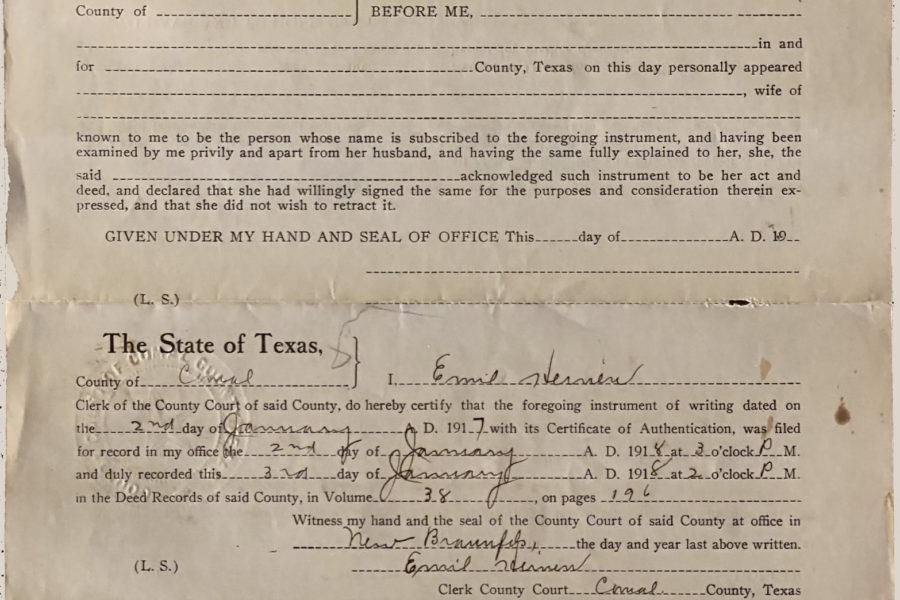 County of BEFORE ME,
in and
for County, Texas on this day personally appeared
, wife of
known to me to be the person whose name is subscribed to the foregoing instrument, and having been
examined by me privily and apart from her husband, and having the same fully explained to her, she, the
said acknowledged such instrument to be her act and
deed, and declared that she had willingly signed the same for the purposes and consideration therein ex-
pressed, and that she did not wish to retract it.
GIVEN UNDER MY HAND AND SEAL OF OFFICE This day of A. D. 19
(L. S.)
The State of Texas,
County of Comal I, Emil Heinen
Clerk of the County Court of said County, do hereby certify that the foregoing instrument of writing dated on
the 2nd day of January A. D. 1917 with its Certificate of Authentication, was filed
for record in my office the 2nd day of January A. D. 1918 at 3 o'clock P M.
and duly recorded this 3rd day of January A. D. 1918 at 2 o'clock P M.
in the Deed Records of said County, in Volume 38, on pages 196
Witness my hand and the seal of the County Court of said County at office in
New Braunfels, the day and year last above written.
(L. S.) Emil Heinen
Clerk County Court Comal County, Texas